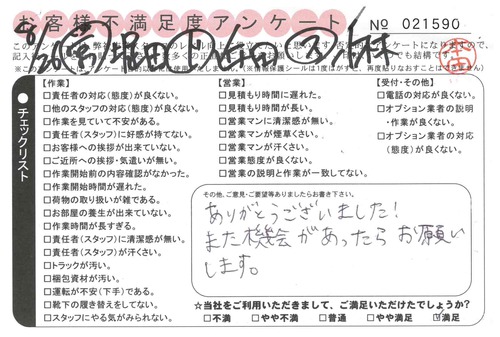 お客様不満足度アンケート
No 021590
8/26
【作業】
□責任者の対応(態度)が良くない。
□他のスタッフの対応(態度)が良くない。
□作業を見ていて不安がある。
□責任者(スタッフ)に好感が持てない。
□お客様への挨拶が出来ていない。
□ご近所への挨拶・気遣いが無い。
□作業開始前の内容確認がなかった。
□作業開始時間が遅れた。
□荷物の取り扱いが雑である。
□お部屋の養生が出来ていない。
□作業時間が長すぎる。
□責任者(スタッフ)に清潔感が無い。
□責任者(スタッフ)が汗くさい。
□トラックが汚い。
□梱包資材が汚い。
□運転が不安(下手)である。
□靴下の履き替えをしてない。
□スタッフにやる気がみられない。
【営業】
□見積もり時間に遅れた。
□見積もり時間が長い。
□営業マンに清潔感が無い。
□営業マンが煙草くさい。
□営業マンが汗くさい。
□営業態度が良くない。
□営業の説明と作業が一致してない。
【受付・その他】
□電話の対応が良くない。
□オプション業者の説明
・作業が良くない。
□オプション業者の対応
(態度)が良くない。
●チェックリスト
その他、ご意見・ご要望等ありましたらお書き下さい。
ありがとうございました!
また機会があったらお願い
します。
☆当社をご利用いただきまして、ご満足いただけたでしょうか?
□不満 □やや不満 □普通 □やや満足 ☑満足